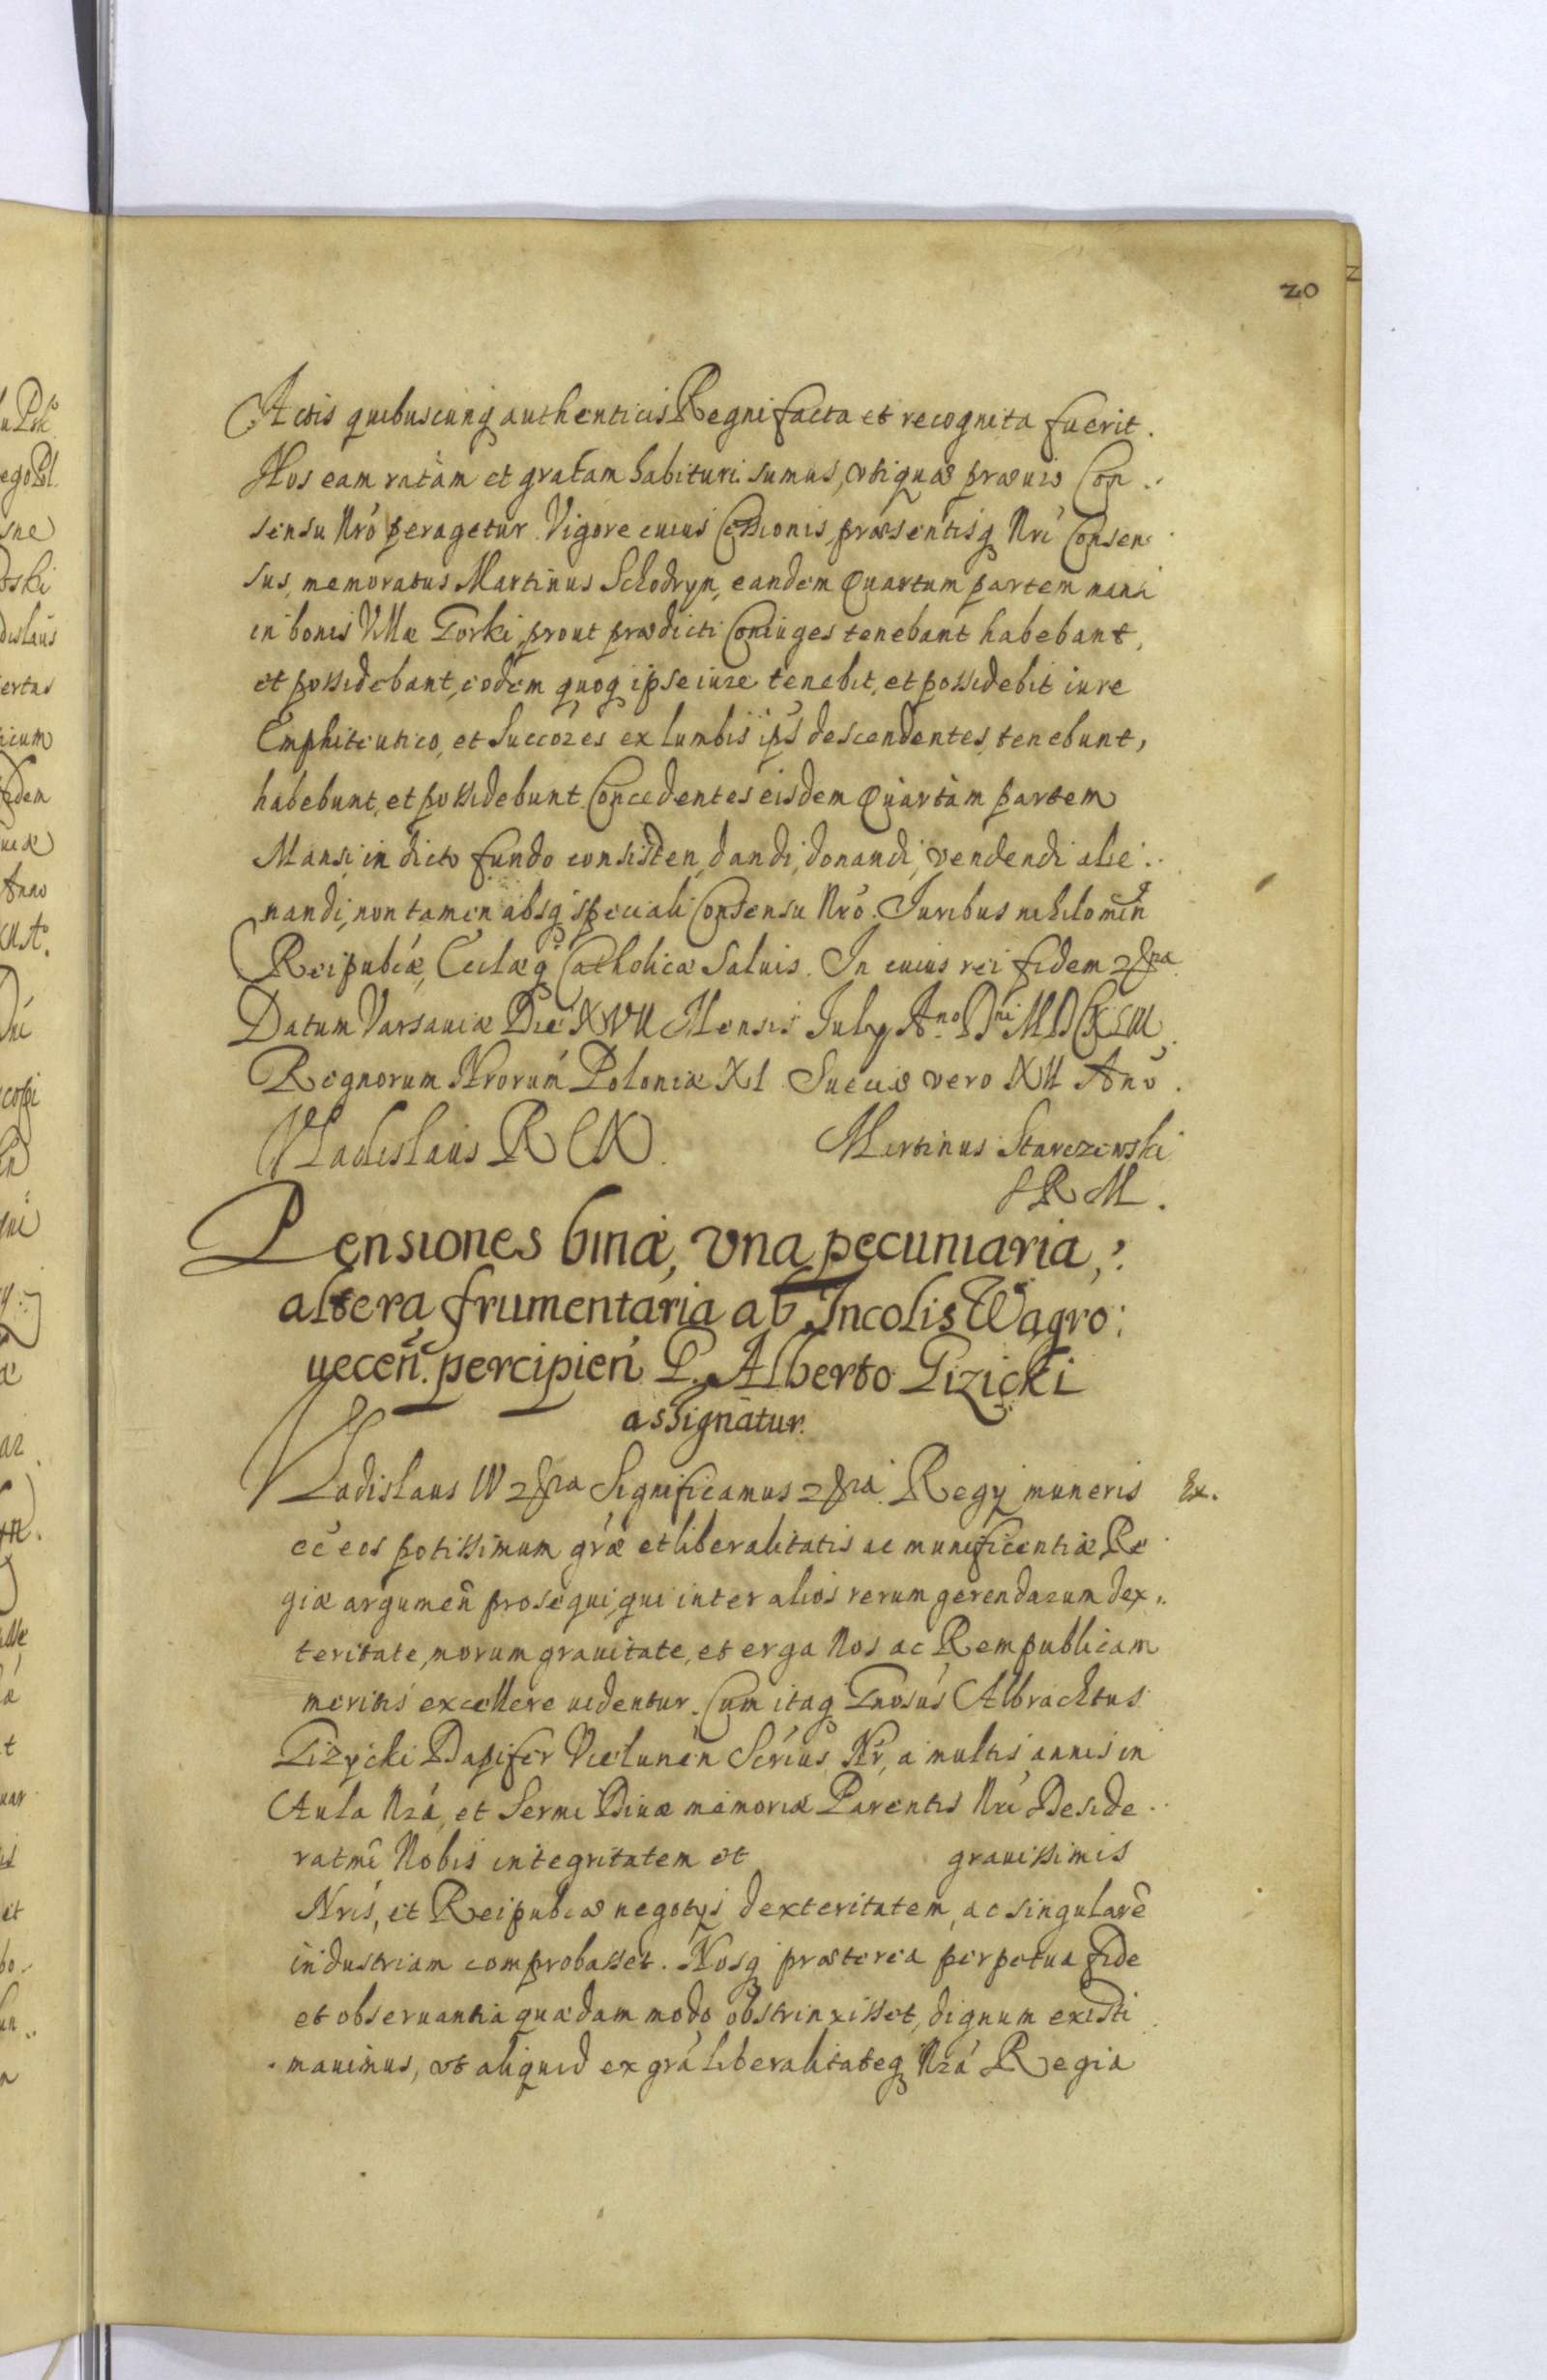 20
Actis quibuscunq authenticis Regni facta et recognita fuerit.
Nos eam ratam et gratam habituri sumus, vtiquæ prævio Con
sensu Nro peragetur. Vigore cuius Cessionis præsentisq Nri Consen
sus, memoratus Martinus Schodryn, eandem Quartam partem mansi
in bonis Villæ Gorki, prout prædicti Coniuges tenebant habebant,
et possidebant, eodem quoq ipse iure tenebit, et possidebit iure
Emphiteutico, et Succores ex lumbis ips descendentes, tenebunt,
habebunt, et possidebunt. Concedentes eisdem Quartam partem
Mansi in dicto fundo consisten, dandi, donandi, vendendi alie
nandi, non tamen absq speciali Consensu Nro. Iuribus nihilomin
Reipubcæ, Ecclæq Catholicæ Saluis. In cuius rei fidem
Datum Varsauiæ Die XVII Mensis July Ano Dni
Regnorum Nrorum Poloniæ XI Sueciæ vero XII Ano.
Vladislaus REX. Martinus Starczewski
S R M.
Pensiones binæ, vna pecuniaria,
altera frumentaria ab Incolis Wagro
uecen. percipien G. Alberto Gizicki
assignatur.
Vladislaus IV Significamus Regij muneris Ex.
ee eos potissimum græ et liberalitatis ac munificentiæ Re
giæ argumen prosequi, qui inter alios rerum gerendarum dex
teritate, morum grauitate, et erga Nos ac Rempublicam
meritis excellere uidentur. Cum itaq Gnosus Albrachtus
Gizycki Dapifer Vielunen Secrius Nr, a multis annis in
Aula Nra, et Sermi Diuæ memoriæ Parentis Nri Deside
ratmi Nobis integritatem et grauissimis
Nris, et Reipubcæ negotys dexteritatem, ac singularem
industriam comprobasset. Nosq præterea perpetua fide
et obseruantia quadam modo obstrinxisset, dignum existi
mauimus, vt aliquid ex gra liberalitateq Nra Regia